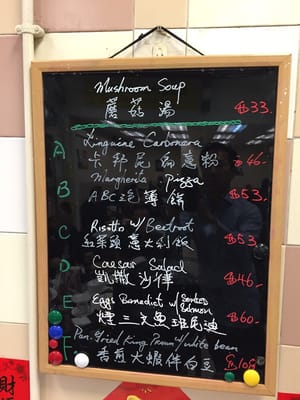 Mushroom Soup
蘑菇湯 $33.
A Linguine Carbonara
卡邦尼扁意粉 $46-
B Margherita pizza
ABC芝薄餅 $53.
C Risotto w/ Beetroot
紅菜頭意大利飯 $53.
D Caesar Salad
凱撒沙律 $46-
E Egg Benedict w/ Smoked Salmon
煙三文魚班尼迪 $60-
F Pan-fried King Prawn w/ white bean
香煎大蝦伴白豆 $108
財